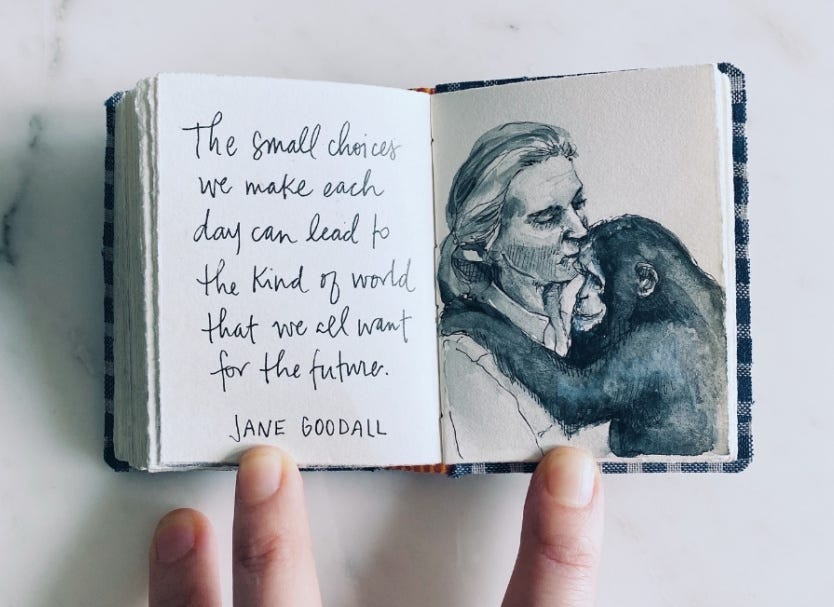 The small choices
we make each
day can lead to
the kind of world
that we all want
for the future.
JANE GOODALL